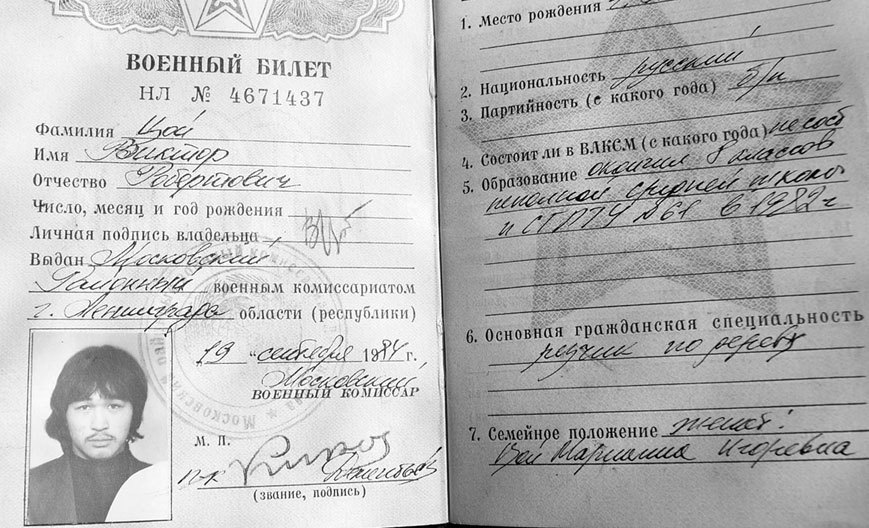 ВОЕННЫЙ БИЛЕТ
НЛ № 4671437
Фамилия Цой
Имя Виктор
Отчество Робертович
Число, месяц и год рождения
Личная подпись владельца
Выдан Московский
Районный военным комиссариатом
г. Ленинграда области (республики)
19 сентября 1984 г.
Московский
ВОЕННЫЙ КОМИССАР
М. П.
п-к
(звание, подпись)
1. Место рождения
2. Национальность русский
3. Партийность (с какого года) б/п
4. Состоит ли в ВЛКСМ (с какого года) не сост
5. Образование окончил 8 классов
средней школы
и СГПТУ №61 в 1982 г
6. Основная гражданская специальность
резчик по дереву
7. Семейное положение женат:
Цой Марианна Игоревна